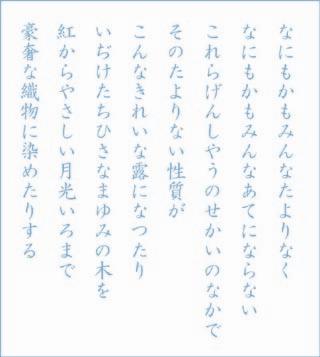 なにもかもみんなたよりなく
なにもかもみんなあてにならない
これらげんしやうのせかいのなかで
そのたよりない性質が
こんなきれいな露になつたり
いぢけたちひさなまゆみの木を
紅からやさしい月光いろまで
豪奢な織物に染めたりする